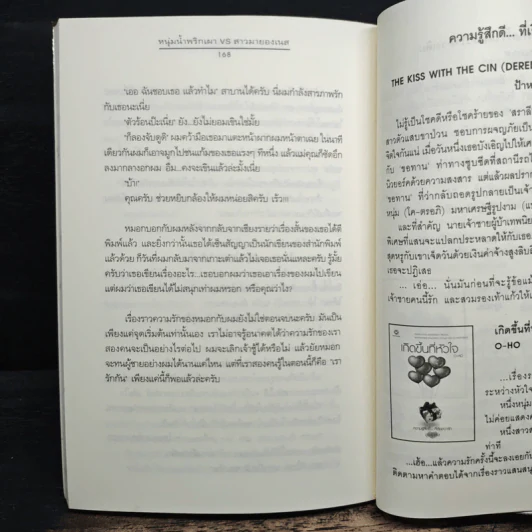 หนุ่มน้ำพริกเผา VS สาวมายองเนส
168
"เออ ฉันชอบเธอ แล้วทำไม" สาบานได้ครับ นี่ผมกำลังสารภาพรัก
กับเธอนะเนี่ย
"ตัวร้อนป่ะเนี่ย" ยัง..ยังไม่ยอมเชินใช่มั้ย
"ก็ลองจับดูดิ" ผมคว้ามือเธอมาแตะหน้าผากผมหน้าตาเฉย ในนาที
เดียวกันผมก็เอาจมูกไปชนแก้มของเธอแรงๆ ทีหนึ่ง แล้วแม่คุณก็ซัดอีก
ลงมากลางอกผม อืม...คงจะเชินแล้วล่ะมั้งเนี่ย
"บ้า"
คุณครับ ช่วยหยิบกล้องให้ผมหน่อยสิครับ เร็วๆ
หมอกบอกกับผมหลังจากกลับจากเชียงรายว่าเรื่องสั้นของเธอได้ตี
พิมพ์แล้ว และยิ่งกว่านั้นเธอได้เซ็นสัญญาเป็นนักเขียนของสำนักพิมพ์
แล้วด้วย ก็วันที่ผมกลับมาจากเกาะเต่าแล้วไม่เจอเธอนั่นแหละครับ รู้มั้ย
ครับว่าเธอเขียนเรื่องอะไร...เธอบอกผมว่าเธอเอาเรื่องของผมไปเขียน
แต่ผมว่าเธอเขียนได้ไม่สนุกเท่าผมหรอก หรือคุณว่าไง?
เรื่องราวความรักของหมอกกับผมยังไม่ใช่ตอนจบนะครับ มันเป็น
เพียงแค่จุดเริ่มต้นเท่านั้นเอง เราไม่อาจรู้อนาคตได้ว่าความรักของเรา
สองคนจะเป็นอย่างไรต่อไป ผมจะเลิกเจ้าชู้ได้หรือไม่ แล้วยัยหมอก
จะทนผู้ชายอย่างผมได้นานแค่ไหน แต่ที่เราสองคนรู้ในตอนนี้ก็คือ 'เรา
รักกัน' เพียงแค่นี้ก็พอแล้วล่ะครับ
ความรู้สึกดี...
THE KISS WITH THE CIN (DERE
ไม่รู้เป็นโชคดีหรือโชคร้ายของ
สาวตัวแสบขาป่วน ชอบการผจญภัยเป็น
จิตใจกันแน่ เมื่อวันหนึ่งเธอบังเอิญไปให้
กับ 'ขอทาน' ท่าทางซูบซีดที่สถานีรถไ
นิวยอร์คด้วยความสงสาร แต่แล้ว
'ขอทาน' ที่ว่ากลับถอดรูปกลายเป็น
หนุ่ม (โค-ตรอภิ) มหาเศรษฐีรูปงาม
และที่สำคัญ นายเจ้าชายผู้น่าเทพนิย
พิเศษที่แสนจะแปลกประหลาดให้กับเธอ
สุดหรูกับเขาเจ็ดวันด้วยเงินค่าจ้างสูงลิบลิ่
เธอจะปฏิเสธ
... เอ่อ... นั่นมันก่อนที่จะรู้
เจ้าชายคนนี้รัก และสวมรองเท้าแก้วให้
เกิดขึ้นที่
O-HO
เกิดขึ้นที่หัวใจ
...เรื่อง
ระหว่างหัวใจ
หนึ่งหนุ่ม
ไม่ค่อยแสดง
หนึ่งสาว
ท่าที
...เฮ้อ...แล้วความรักครั้งนี้จะลงเอย
ติดตามหาคำตอบได้จากเรื่องราวแสน